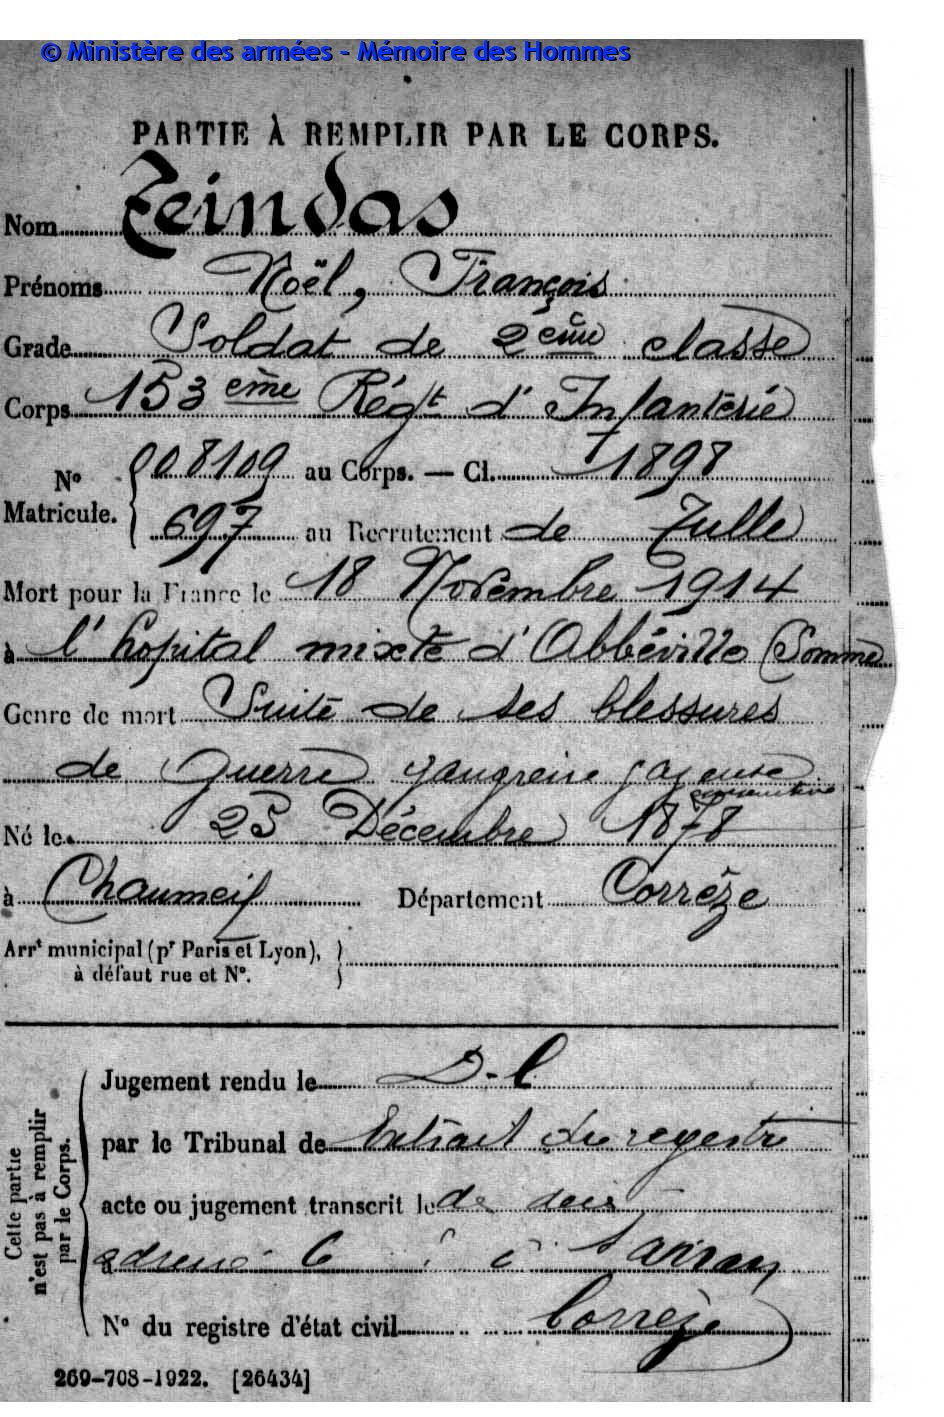 © Ministère des armées - Mémoire des Hommes
PARTIE À REMPLIR PAR LE CORPS.
Nom Zeindas
Prénoms Noël, François
Grade Soldat de 2ème classe
Corps 153ème Régt d'Infanterie
N° Matricule. 008109 au Corps. — Cl. 1898
697 au Recrutement de Tulle
Mort pour la France le 18 Novembre 1914
à l'hopital mixte d'Abbéville (Somme
Genre de mort Suite de ses blessures
de guerre gangreine gazeuse
consécutive
Né le 25 Décembre 1878
à Chaumeil Département Corrèze
Arrt municipal (pr Paris et Lyon),
à défaut rue et N°.
Cette partie
n'est pas à remplir
par le Corps.
Jugement rendu le D-C
par le Tribunal de Extrait du registre
acte ou jugement transcrit le de
à à Sarran
N° du registre d'état civil Corrèze
269-708-1922. [26434]